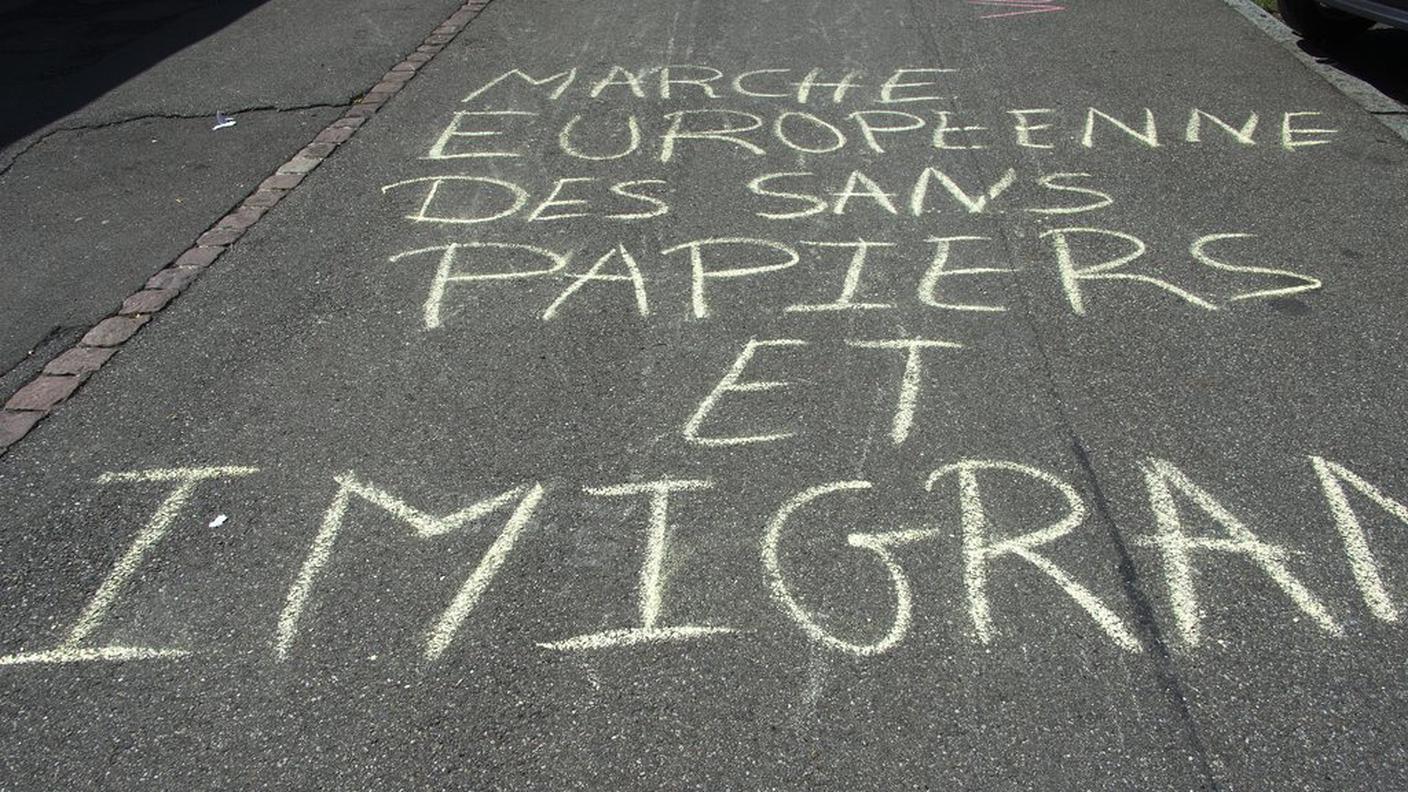 MARCHE
EUROPEENNE
DES SANS
PAPIERS
ET
IMIGRAN